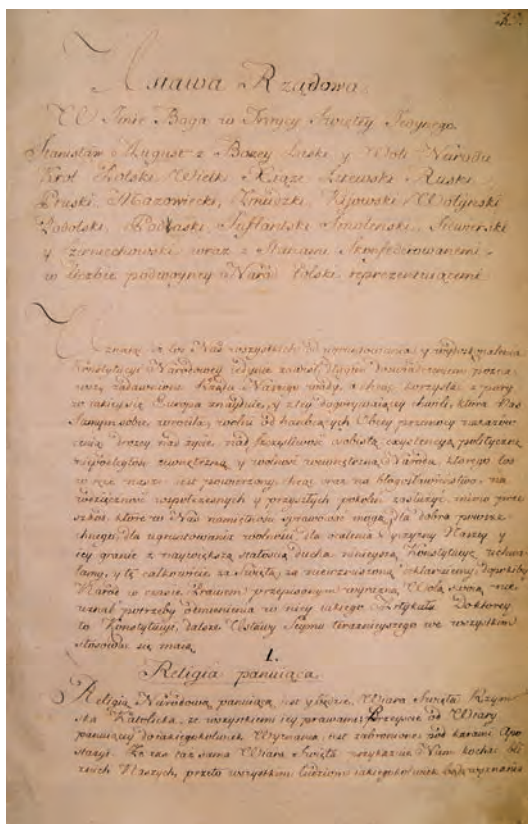 Ustawa Rządowa.
W Imie Boga w Troycy Swiętey Jedynego.
Stanisław August z Bożey Łaski y Woli Narodu
Krol Polski Wielki Xiąże Litewski Ruski
Pruski, Mazowiecki, Zmudzki, Kijowski Wołynski
Podolski, Podlaski, Inflantski Smolenski, Siewierski
y Czerniechowski, wraz z Stanami Skonfederowanemi
w liczbie podwoyney Narod Polski reprezentuiącemi
Uznaiąc, iż los Nas wszystkich od ugruntowania y wydoskonalenia
Konstytucyi Narodowey iedynie zawisł, długim doswiadczeniem pozna-
wszy zadawnione Rządu Naszego wady, a chcąc korzystać z pory
w iakiey się Europa znayduie, y z tey dogorywaiącey chwili, która Nas
samym sobie wrociła, wolni od hanbiących Obcey przemocy nakazow
ceniąc drożey nad życie, nad szczęsliwość osobistą exystencyą polityczną
niepodległość zewnętrzną y wolność wewnętrzną Narodu, ktorego los
w ręce nasze iest powierzony, chcąc oraz na błogosławienstwo, na
wdzięczność wspołczesnych y przyszłych pokoleń zasłużyć, mimo prze-
szkod, które w Nas namiętności sprawować mogą, dla dobra powsze-
chnego, dla ugruntowania wolności, dla ocalenia Oyczyzny Naszey y
iey granic z naywiększą stałością ducha ninieyszą Konstytucyę uchwa-
lamy, y tę całkowicie za świętą, za niewzruszoną deklaruiemy, dopokiby
Narod w czasie Prawem przepisanym wyraźną Wolą swoią nie
uznał potrzeby odmienienia w niey iakiego Artykułu. Do ktorey
to Konstytucyi, dalsze Ustawy Seymu teraznieyszego we wszystkim
stosować się maią.
I.
Religia panuiąca.
Religią Narodową panuiącą iest y będzie, Wiara Swięta Rzym-
ska Katolicka, ze wszystkiemi iey prawami; Przeyscie od Wiary
panuiącey do iakiegokolwiek Wyznania, iest zabronione pod karami Apo-
stazyi. Ze zas taż sama Wiara Swięta przykazuie Nam kochać bli-
źnich Naszych, przeto wszystkim ludziom iakiegokolwiek bądź wyznania